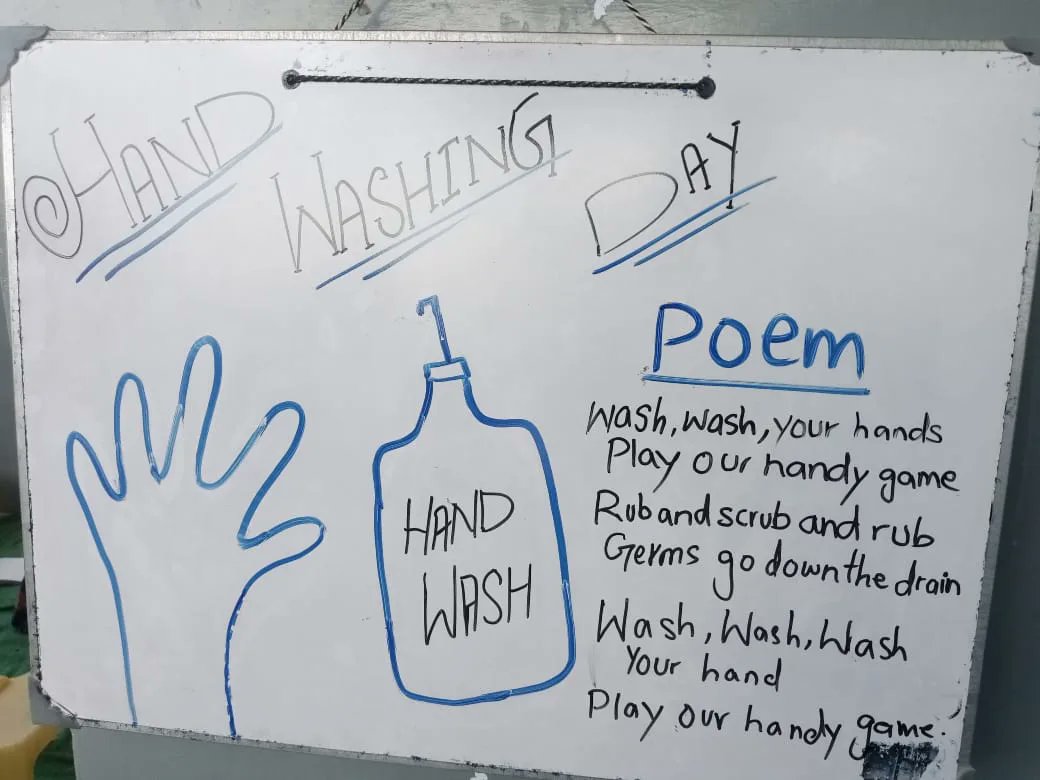 @HAND WASHING DAY
HAND
WASH
Poem
Wash, wash, your hands
Play our handy game
Rub and scrub and rub
Germs go down the drain
Wash, Wash, Wash
Your hand
Play our handy game.